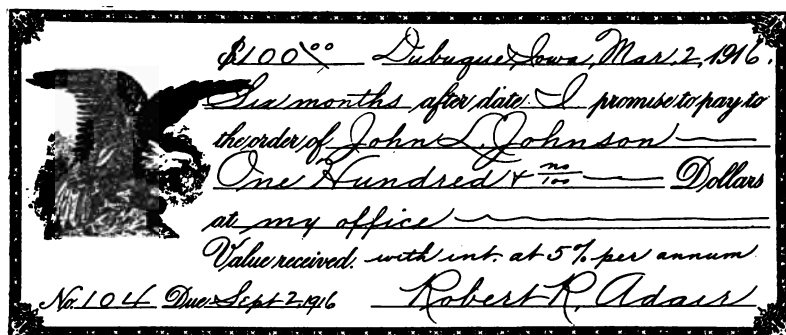 $100 00 Dubuque, Iowa, Mar. 2, 1916.
Six months after date I promise to pay to
the order of John L. Johnson
One Hundred & no/100 Dollars
at my office
Value received. with int. at 5% per annum
No. 104 Due Sept 2, 1916 Robert R. Adair